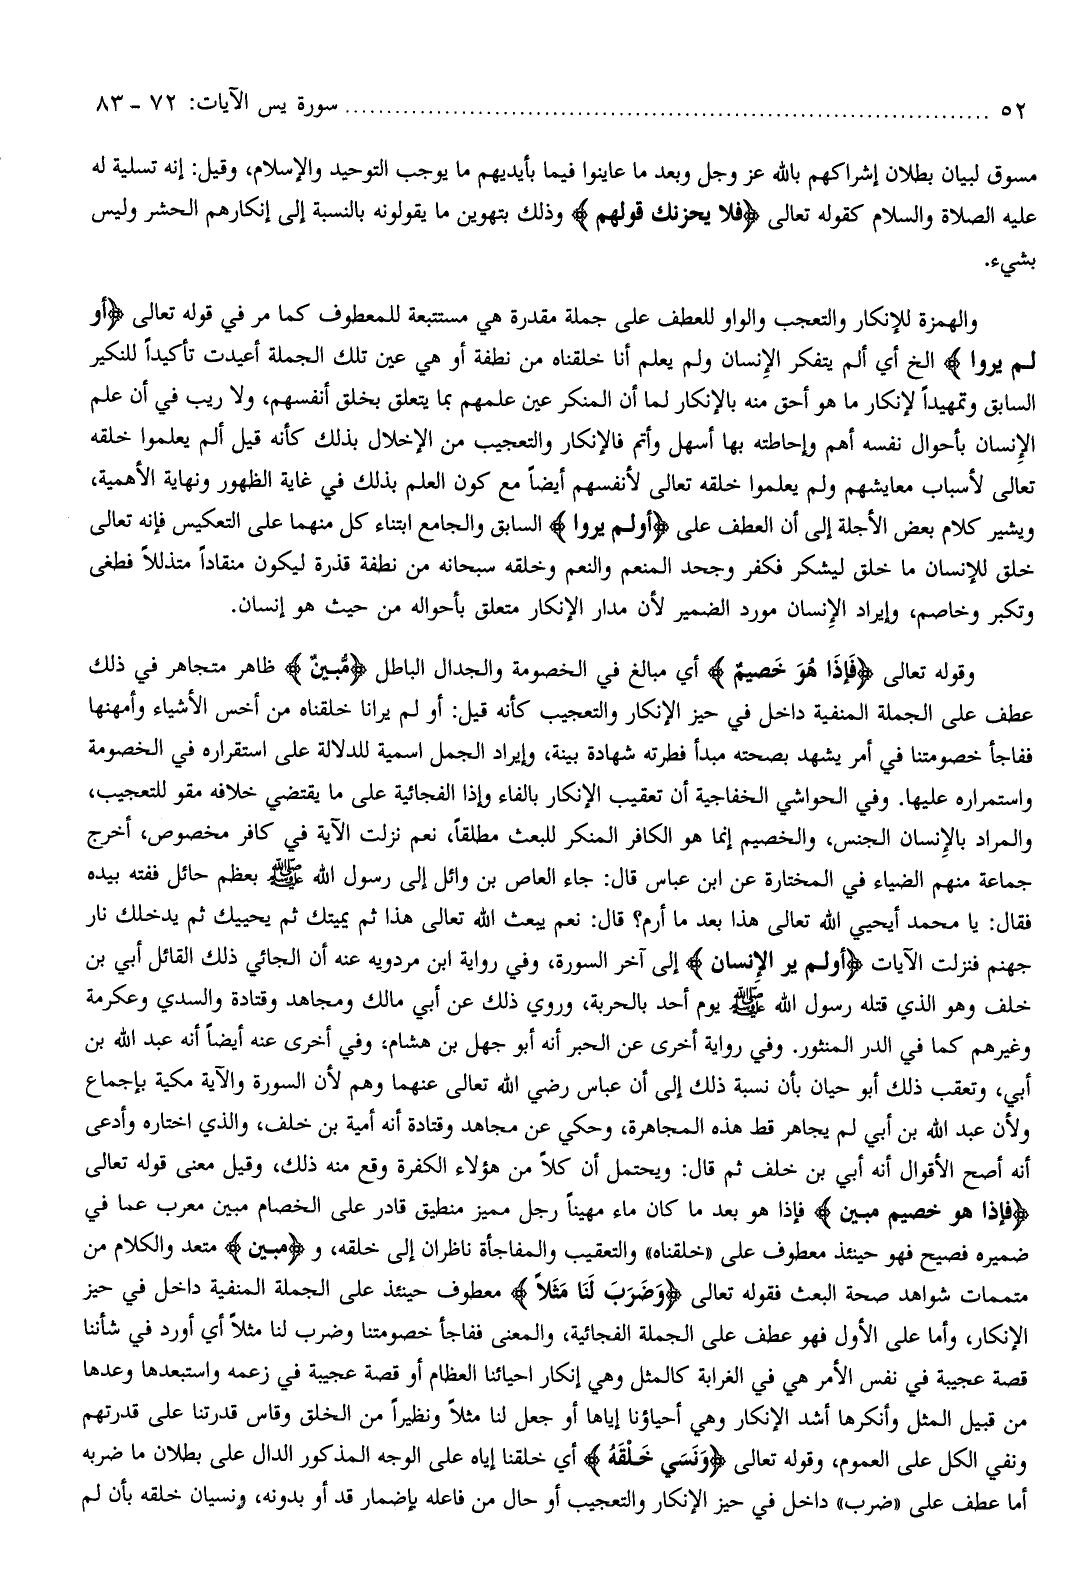 ٥٢ ........................................................................................ سورة يس الآيات: ٧٢ - ٨٣
مسوق لبيان بطلان إشراكهم بالله عز وجل وبعد ما عاينوا فيما بأيديهم ما يوجب التوحيد والإسلام، وقيل: إنه تسلية له
عليه الصلاة والسلام كقوله تعالى ﴿فلا يحزنك قولهم﴾ وذلك بتهوين ما يقولونه بالنسبة إلى إنكارهم الحشر وليس
بشيء.
والهمزة للإنكار والتعجب والواو للعطف على جملة مقدرة هي مستتبعة للمعطوف كما مر في قوله تعالى ﴿أو
لم يروا﴾ الخ أي ألم يتفكر الإنسان ولم يعلم أنا خلقناه من نطفة أو هي عين تلك الجملة أعيدت تأكيداً للنكير
السابق وتمهيداً لإنكار ما هو أحق منه بالإنكار لما أن المنكر عين علمهم بما يتعلق بخلق أنفسهم، ولا ريب في أن علم
الإنسان بأحوال نفسه أهم وإحاطته بها أسهل وأتم فالإنكار والتعجيب من الإخلال بذلك كأنه قيل ألم يعلموا خلقه
تعالى لأسباب معايشهم ولم يعلموا خلقه تعالى لأنفسهم أيضاً مع كون العلم بذلك في غاية الظهور ونهاية الأهمية،
ويشير كلام بعض الأجلة إلى أن العطف على ﴿أولم يروا﴾ السابق والجامع ابتناء كل منهما على التعكيس فإنه تعالى
خلق للإنسان ما خلق ليشكر فكفر وجحد المنعم والنعم وخلقه سبحانه من نطفة قذرة ليكون منقاداً متذللاً فطغى
وتكبر وخاصم، وإيراد الإنسان مورد الضمير لأن مدار الإنكار متعلق بأحواله من حيث هو إنسان.
وقوله تعالى ﴿فَإِذَا هُوَ خَصِيمٌ﴾ أي مبالغ في الخصومة والجدال الباطل ﴿مُّبِينٌ﴾ ظاهر متجاهر في ذلك
عطف على الجملة المنفية داخل في حيز الإنكار والتعجيب كأنه قيل: أو لم يرانا خلقناه من أخس الأشياء وأمهنها
ففاجأ خصومتنا في أمر يشهد بصحته مبدأ فطرته شهادة بينة، وإيراد الجمل اسمية للدلالة على استقراره في الخصومة
واستمراره عليها. وفي الحواشي الخفاجية أن تعقيب الإنكار بالفاء وإذا الفجائية على ما يقتضي خلافه مقو للتعجيب،
والمراد بالإنسان الجنس، والخصيم إنما هو الكافر المنكر للبعث مطلقاً، نعم نزلت الآية في كافر مخصوص، أخرج
جماعة منهم الضياء في المختارة عن ابن عباس قال: جاء العاص بن وائل إلى رسول الله ﷺ بعظم حائل ففته بيده
فقال: يا محمد أيحيي الله تعالى هذا بعد ما أرم؟ قال: نعم يبعث الله تعالى هذا ثم يميتك ثم يحييك ثم يدخلك نار
جهنم فنزلت الآيات ﴿أولم ير الإنسان﴾ إلى آخر السورة، وفي رواية ابن مردويه عنه أن الجائي ذلك القائل أبي بن
خلف وهو الذي قتله رسول الله ﷺ يوم أحد بالحربة، وروي ذلك عن أبي مالك ومجاهد وقتادة والسدي وعكرمة
وغيرهم كما في الدر المنثور. وفي رواية أخرى عن الحبر أنه أبو جهل بن هشام، وفي أخرى عنه أيضاً أنه عبد الله بن
أبي، وتعقب ذلك أبو حيان بأن نسبة ذلك إلى أن عباس رضي الله تعالى عنهما وهم لأن السورة والآية مكية بإجماع
ولأن عبد الله بن أبي لم يجاهر قط هذه المجاهرة، وحكي عن مجاهد وقتادة أنه أمية بن خلف، والذي اختاره وأدعى
أنه أصح الأقوال أنه أبي بن خلف ثم قال: ويحتمل أن كلاً من هؤلاء الكفرة وقع منه ذلك، وقيل معنى قوله تعالى
﴿فإذا هو خصيم مبين﴾ فإذا هو بعد ما كان ماء مهيناً رجل مميز منطيق قادر على الخصام مبين معرب عما في
ضميره فصيح فهو حينئذ معطوف على «خلقناه» والتعقيب والمفاجأة ناظران إلى خلقه، و﴿مبين﴾ متعد والكلام من
متممات شواهد صحة البعث فقوله تعالى ﴿وَضَرَبَ لَنَا مَثَلاً﴾ معطوف حينئذ على الجملة المنفية داخل في حيز
الإنكار، وأما على الأول فهو عطف على الجملة الفجائية، والمعنى ففاجأ خصومتنا وضرب لنا مثلاً أي أورد في شأننا
قصة عجيبة في نفس الأمر هي في الغرابة كالمثل وهي إنكار احيائنا العظام أو قصة عجيبة في زعمه واستبعدها وعدها
من قبيل المثل وأنكرها أشد الإنكار وهي أحياؤنا إياها أو جعل لنا مثلاً ونظيراً من الخلق وقاس قدرتنا على قدرتهم
ونفي الكل على العموم، وقوله تعالى ﴿وَنَسِي خَلْقَهُ﴾ أي خلقنا إياه على الوجه المذكور الدال على بطلان ما ضربه
أما عطف على «ضرب» داخل في حيز الإنكار والتعجيب أو حال من فاعله بإضمار قد أو بدونه، ونسيان خلقه بأن لم